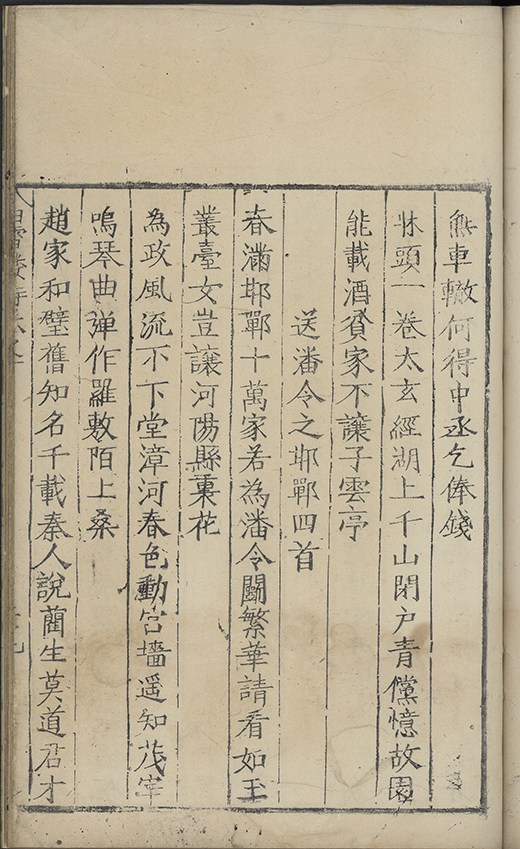 無車轍何得中丞乞俸錢
牀頭一卷太玄經湖上千山閉户青儻憶故園
能載酒貧家不讓子雲亭
送潘令之邯鄲四首
春滿邯鄲十萬家若為潘令鬭繁華請看如玉
叢臺女豈讓河陽縣裏花
為政風流不下堂漳河春色動宮墻遥知茂宰
鳴琴曲彈作羅敷陌上桑
趙家和璧舊知名千載秦人說藺生莫道君才